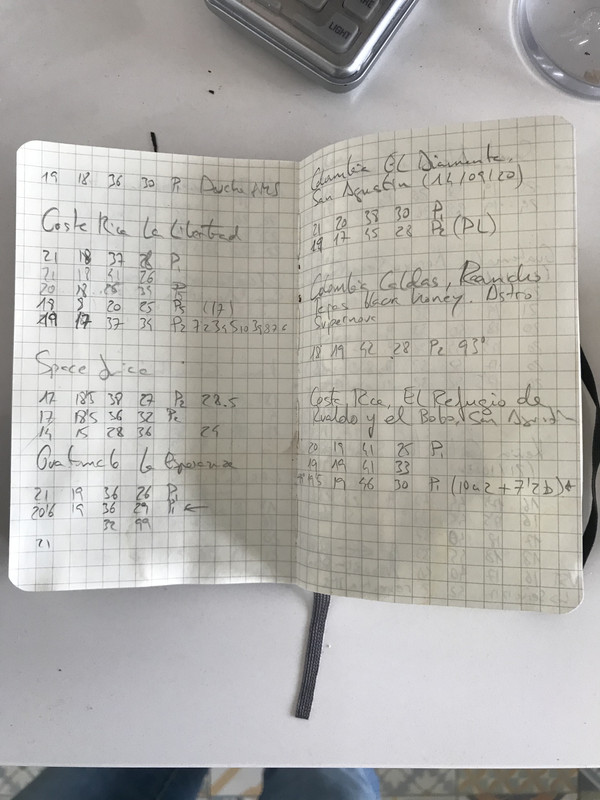 LIGHT
19 18 36 30 P1
Costa Rica La Libertad
21 18 37 26 P1
21 17 41 26
20 18 35 P
19 9 20 25 (17)
19 17 37 35 P2
Space
17 18'5 38 27 P2 28.5
17 18'5 36 32 P2
14 15 28 36 24
Guatemala la Esperanza
21 19 36 26 P1
20'6 19 36 29 P1 ←
32 99
21
Colombia El Diamante,
San Agustin (14/09/20)
21 20 38 30 P1
19 17 45 28 P2 (PL)
Colombia Caldas, Rancho
honey. Astro
Supernova
18 19 42 28 P2 93°
Costa Rica, El Refugio de
y el Bobo, San
20 19 41 25 P1
19 19 41 33
19'5 19 46 30 P1 (10a2 + 7'2b) ←